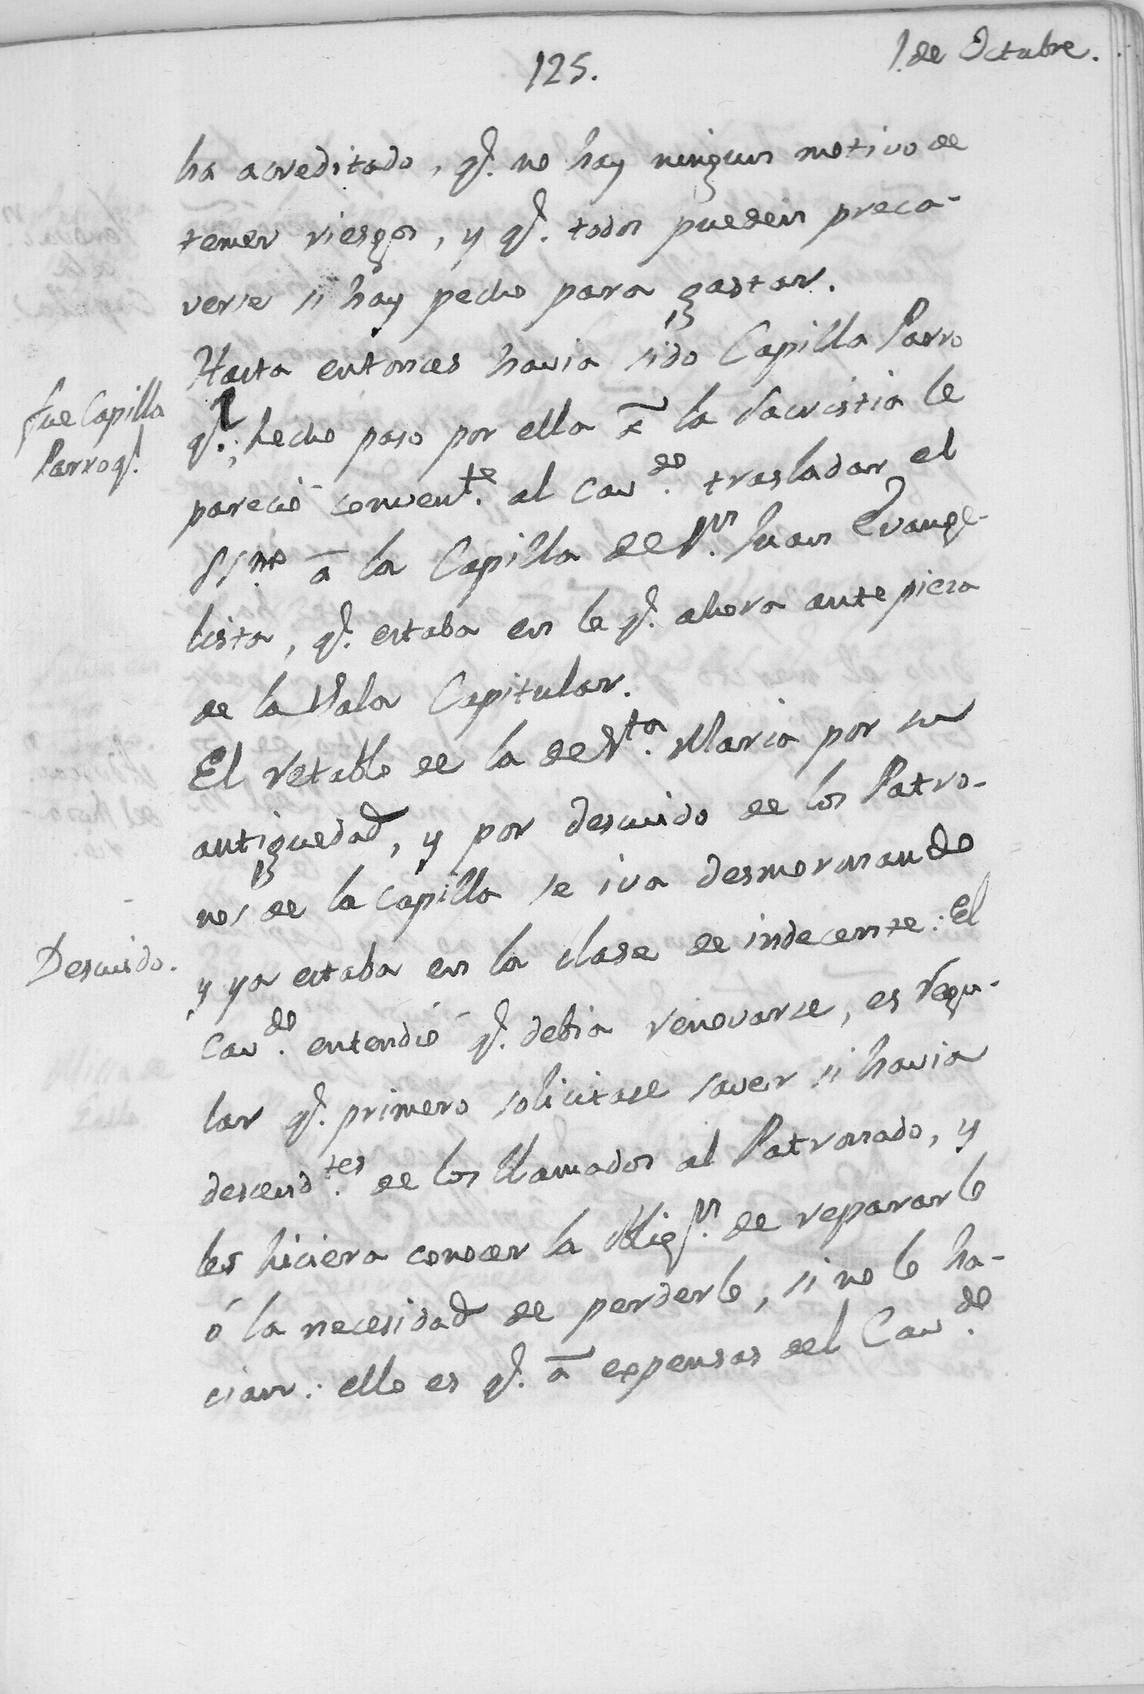 125.
1. de Octubre.
ha acreditado, q.e no hay ningun motivo de
temer riesgos, y q.e todos pueden preca-
verse si hay pecho para gastar.
Hasta entonces havia sido Capilla Parro
fue Capilla
Parroq.l
q.l; hecho paso por ella â la Sacristia le
pareciò convent.te al Cav.do trasladar el
SS.mo â la Capilla de S.n Juan Evange-
lista, q.e estaba en lo q.e ahora antepieza
de la Sala Capitular.
El retablo de la de S.ta Maria por su
antiguedad, y por descuido de los Patro-
nos de la Capilla se iva desmoronando
Descuido.
y ya estaba en la clase de indecente: El
Cav.do entendiò q.e debia renovarse, es regu-
lar q.e primero solicitase saver si havia
descend.tes de los llamados al Patronado, y
les hiciera conocer la oblig.n de repararlo
ó la necesidad de perderlo, si no lo ha-
cian: ello es q.e â expensas del Cav.do